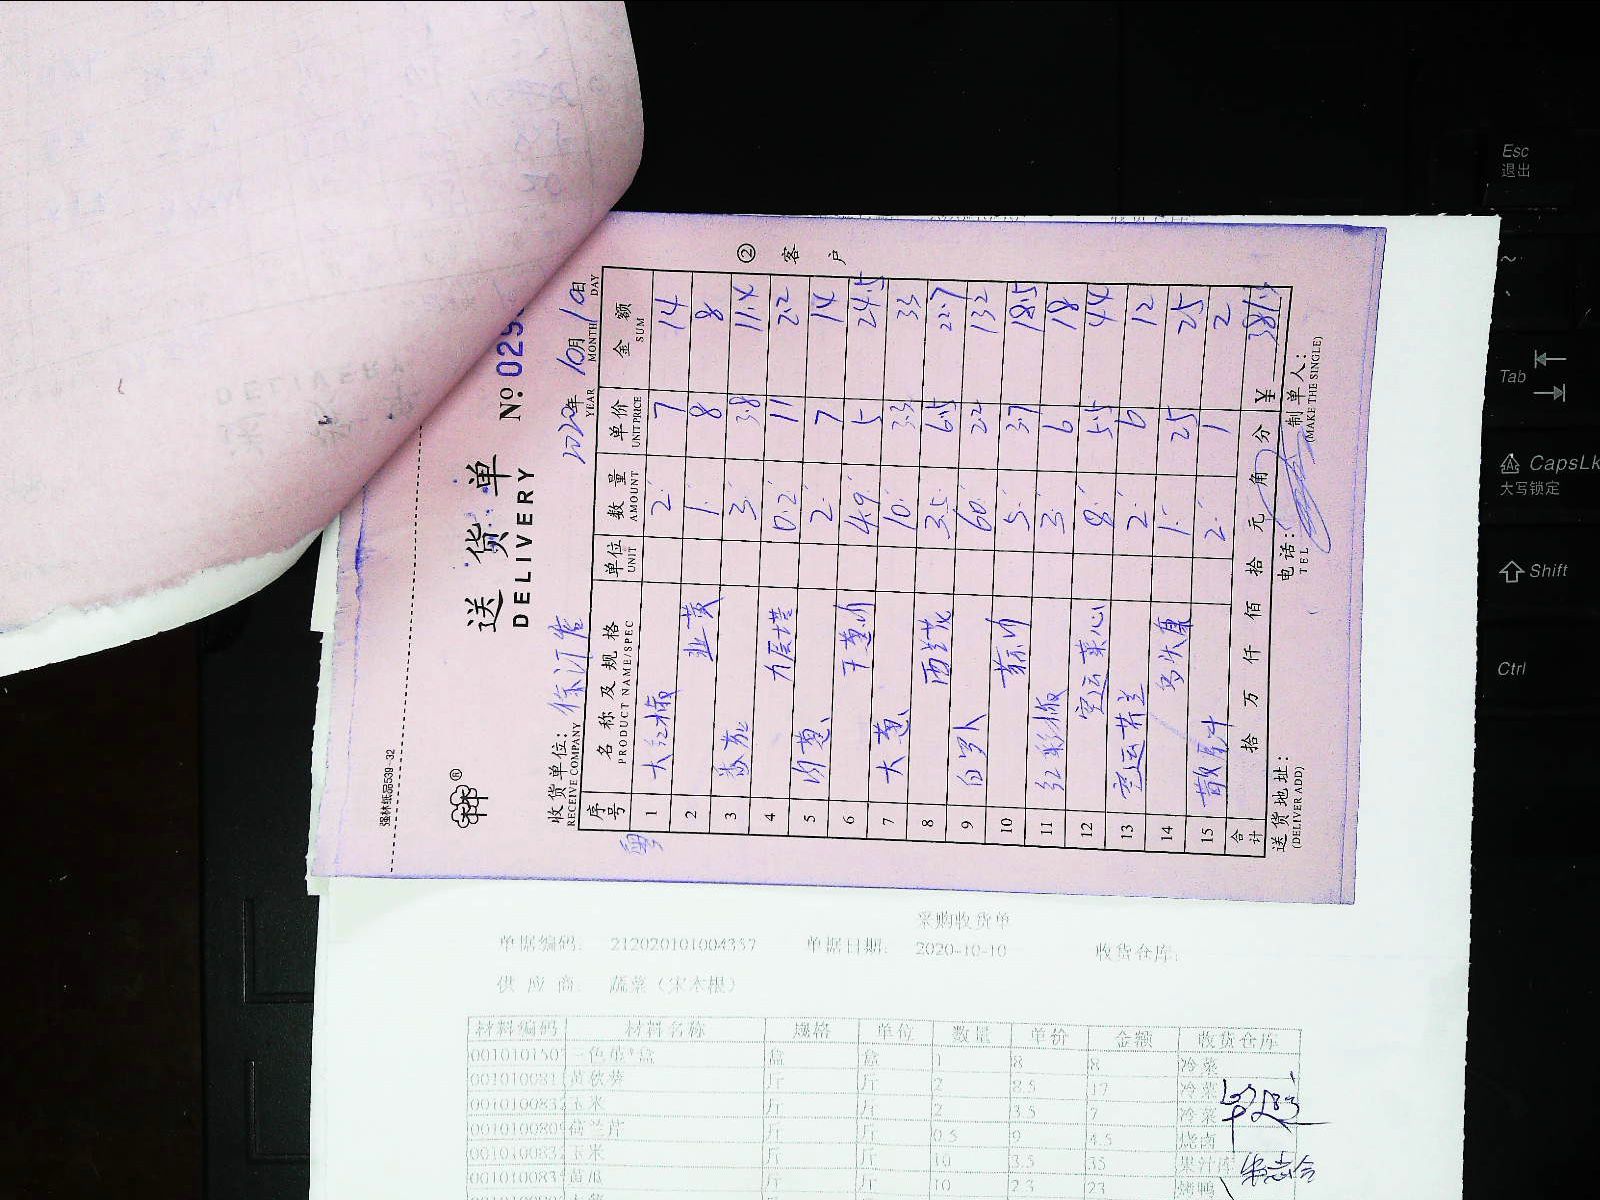 强林纸品539-32
送货单
DELIVERY
№ 029
收货单位:
RECEIVE COMPANY
2020年 10月 10日
YEAR MONTH DAY
② 客户
序号 名称及规格 单位 数量 单价 金额
PRODUCT NAME/SPEC UNIT AMOUNT UNIT PRICE SUM
粤
1 大红椒 2 7 14
2 韭黄 1 8 8
3 3 3.8 11.4
4 九层塔 0.2 11 2.2
5 肉葱 2 7 14
6 干葱 4.9 5 24.5
7 大葱 10 3.3 33
8 西兰花 3.5 6.5 22.7
9 白罗卜 60 2.2 132
10 5 3.7 18.5
11 红彩椒 3 6 18
12 空运菜心 8 5.5 44
13 空运芥兰 2 6 12
14 1 25 25
15 2 1 2
合计 拾 万 仟 佰 拾 元 角 分 ¥ 381.3
送货地址:
(DELIVER ADD)
电话:
TEL
制单人:
(MAKE THE SINGLE)
采购收货单
单据编码: 212020101004357 单据日期: 2020-10-10 收货仓库:
供应商: 蔬菜(宋木根)
材料编码 材料名称 规格 单位 数量 单价 金额 收货仓库
00101015 盒 盒 1 8 8 冷菜
001010081 黄秋葵 斤 斤 2 8.5 17 冷菜
001010083 玉米 斤 斤 2 3.5 7 冷菜
001010080 荷兰芹 斤 斤 0.5 9 4.5 烧卤
001010083 玉米 斤 斤 10 3.5 35 果汁库
001010083 黄瓜 斤 斤 10 2.3 23 烤鸭
Esc
退出
~
Tab
CapsLk
大写锁定
Shift
Ctrl